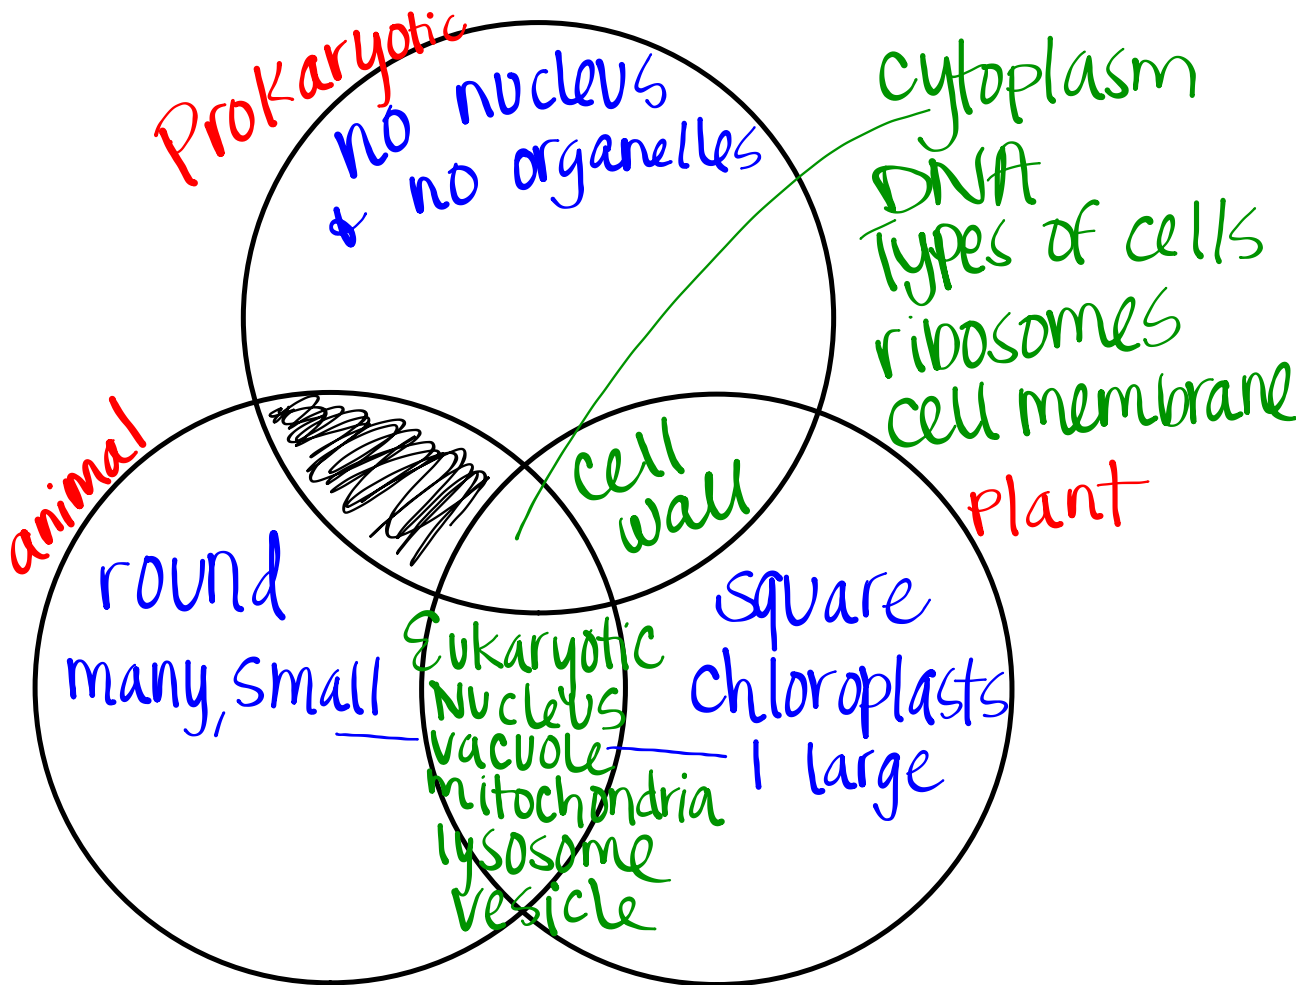 Prokaryotic
no nucleus
& no organelles
cytoplasm
DNA
Types of cells
ribosomes
cell membrane
animal
Plant
cell
wall
round
many, small
Eukaryotic
Nucleus
vacuole
mitochondria
lysosome
vesicle
square
chloroplasts
1 large